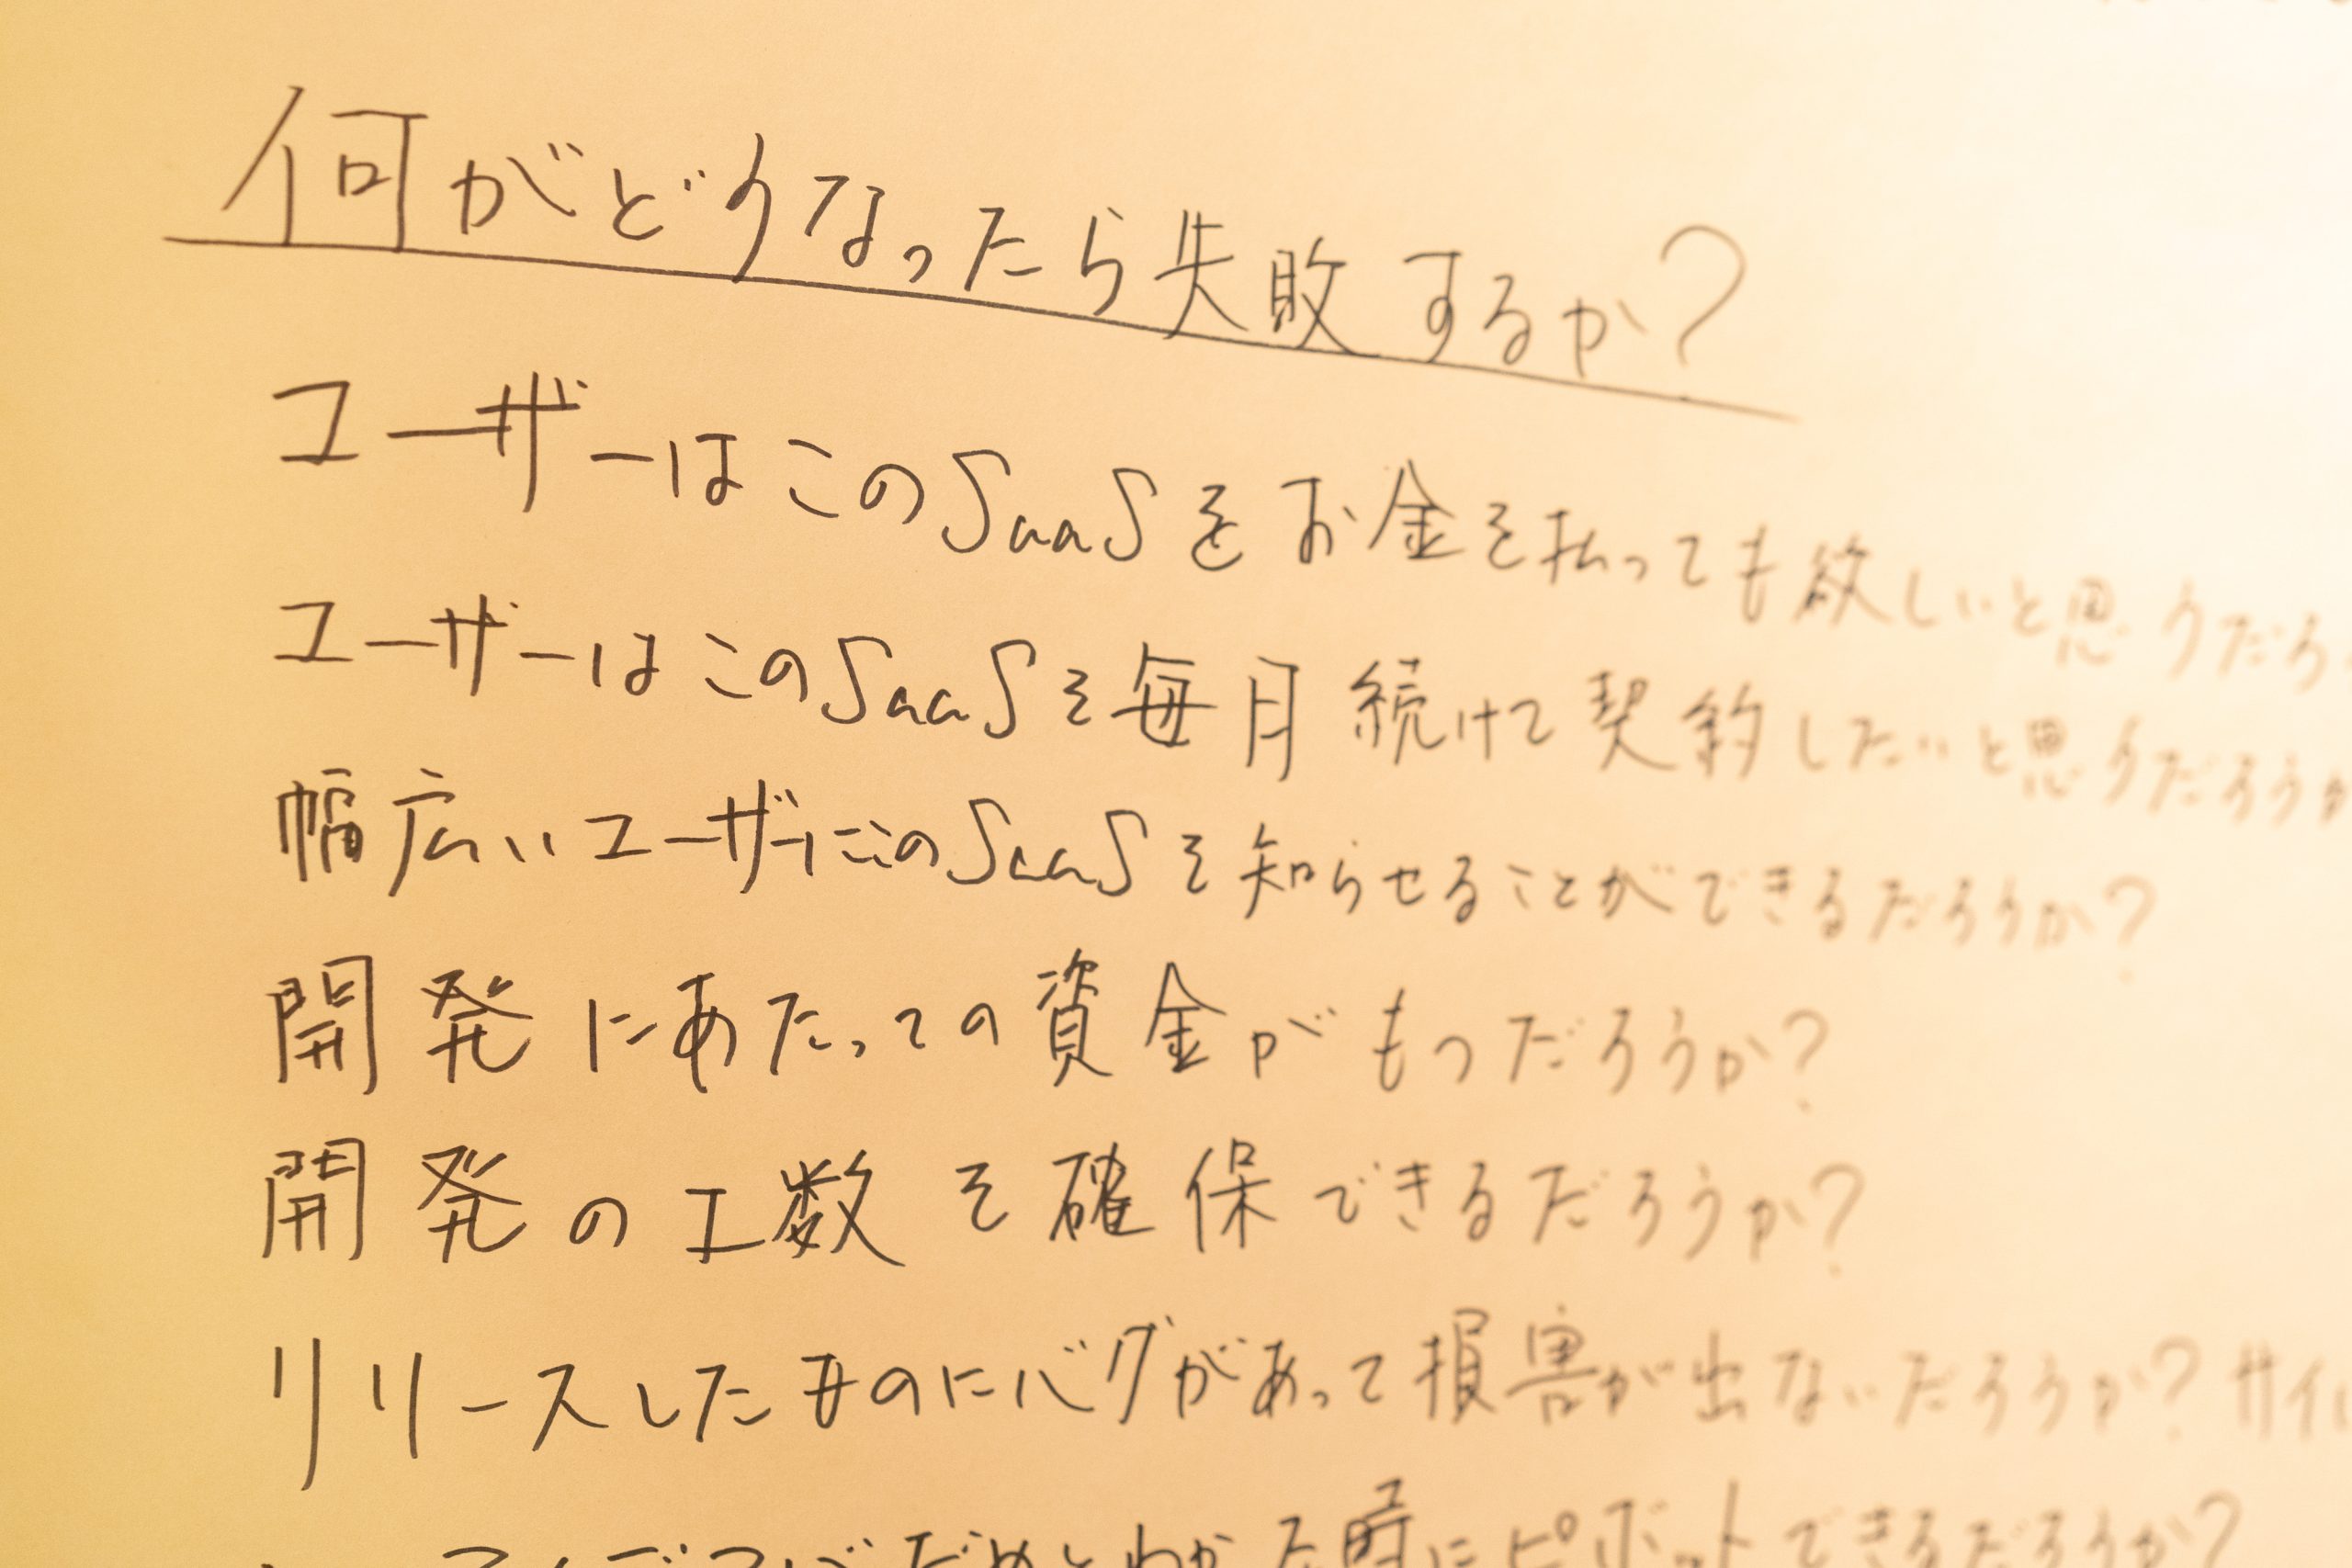 何がどうなったら失敗するか?
ユーザーはこのSaaSをお金を払っても欲しいと思うだろう
ユーザーはこのSaaSを毎月続けて契約したいと思うだろうか
幅広いユーザーにこのSaaSを知らせることができるだろうか?
開発にあたっての資金がもつだろうか?
開発の工数を確保できるだろうか?
リリースしたものにバグがあって損害が出ないだろうか? サイ
アイデアがだめとわかった時にピボットできるだろうか?